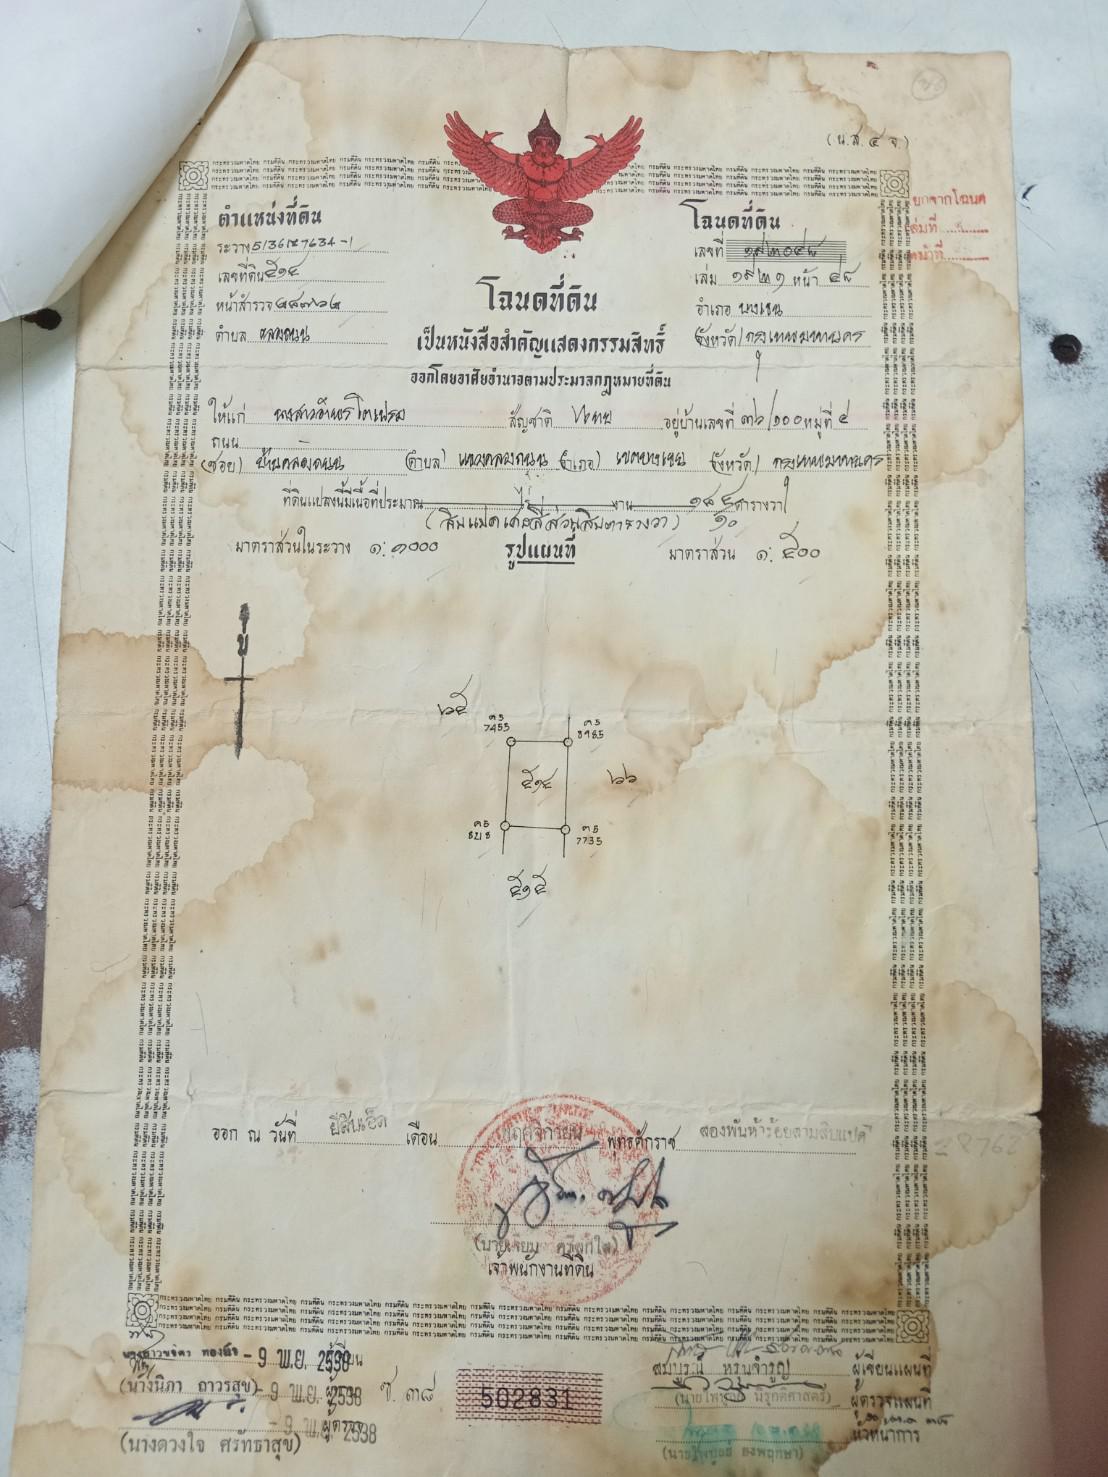 (น.ส. ๔ จ.)
ตำแหน่งที่ดิน
ระวาง 5136 IV 7634-1
เลขที่ดิน ๕๑๔
หน้าสำรวจ
ตำบล คลองถนน
โฉนดที่ดิน
เลขที่
เล่ม หน้า ๔๘
อำเภอ บางเขน
จังหวัด กรุงเทพมหานคร
ยกจากโฉนด
เล่มที่
หน้าที่
โฉนดที่ดิน
เป็นหนังสือสำคัญแสดงกรรมสิทธิ์
ออกโดยอาศัยอำนาจตามประมวลกฎหมายที่ดิน
ให้แก่ นางสาวอำพร สัญชาติ ไทย อยู่บ้านเลขที่ ๓๖/๑๐๐ หมู่ที่ ๕
ถนน
(ซอย) บ้านคลองถนน (ตำบล) แขวงคลองถนน (อำเภอ) เขตบางเขน จังหวัด กรุงเทพมหานคร
ที่ดินแปลงนี้มีเนื้อที่ประมาณ ไร่ งาน ๑๘ ๔/๑๐ ตารางวา
(สิบแปดเศษสี่ส่วนสิบตารางวา)
มาตราส่วนในระวาง ๑:๑๐๐๐ รูปแผนที่ มาตราส่วน ๑:๕๐๐
น
๖๕
คธ 7455
คธ 8985
๕๑๔
๖๖
คธ
คธ 7735
๕๑๕
ออก ณ วันที่ ยี่สิบเอ็ด เดือน พฤศจิกายน พุทธศักราช สองพันห้าร้อยสามสิบแปด
8762
เจ้าพนักงานที่ดิน
- 9 พ.ย. 2538
(นางนิภา ถาวรสุข) - 9 พ.ย. 2538
- 9 พ.ย. 2538
ผู้ตรวจ
(นางดวงใจ ศรัทธาสุข)
ช. ๓๘
502831
สมบูรณ์ หรุ่นจำรูญ ผู้เขียนแผนที่
นิรุกติศาสตร์) ผู้ตรวจแผนที่
หัวหน้าการ
(นายไพบูลย์ องพฤกษา)